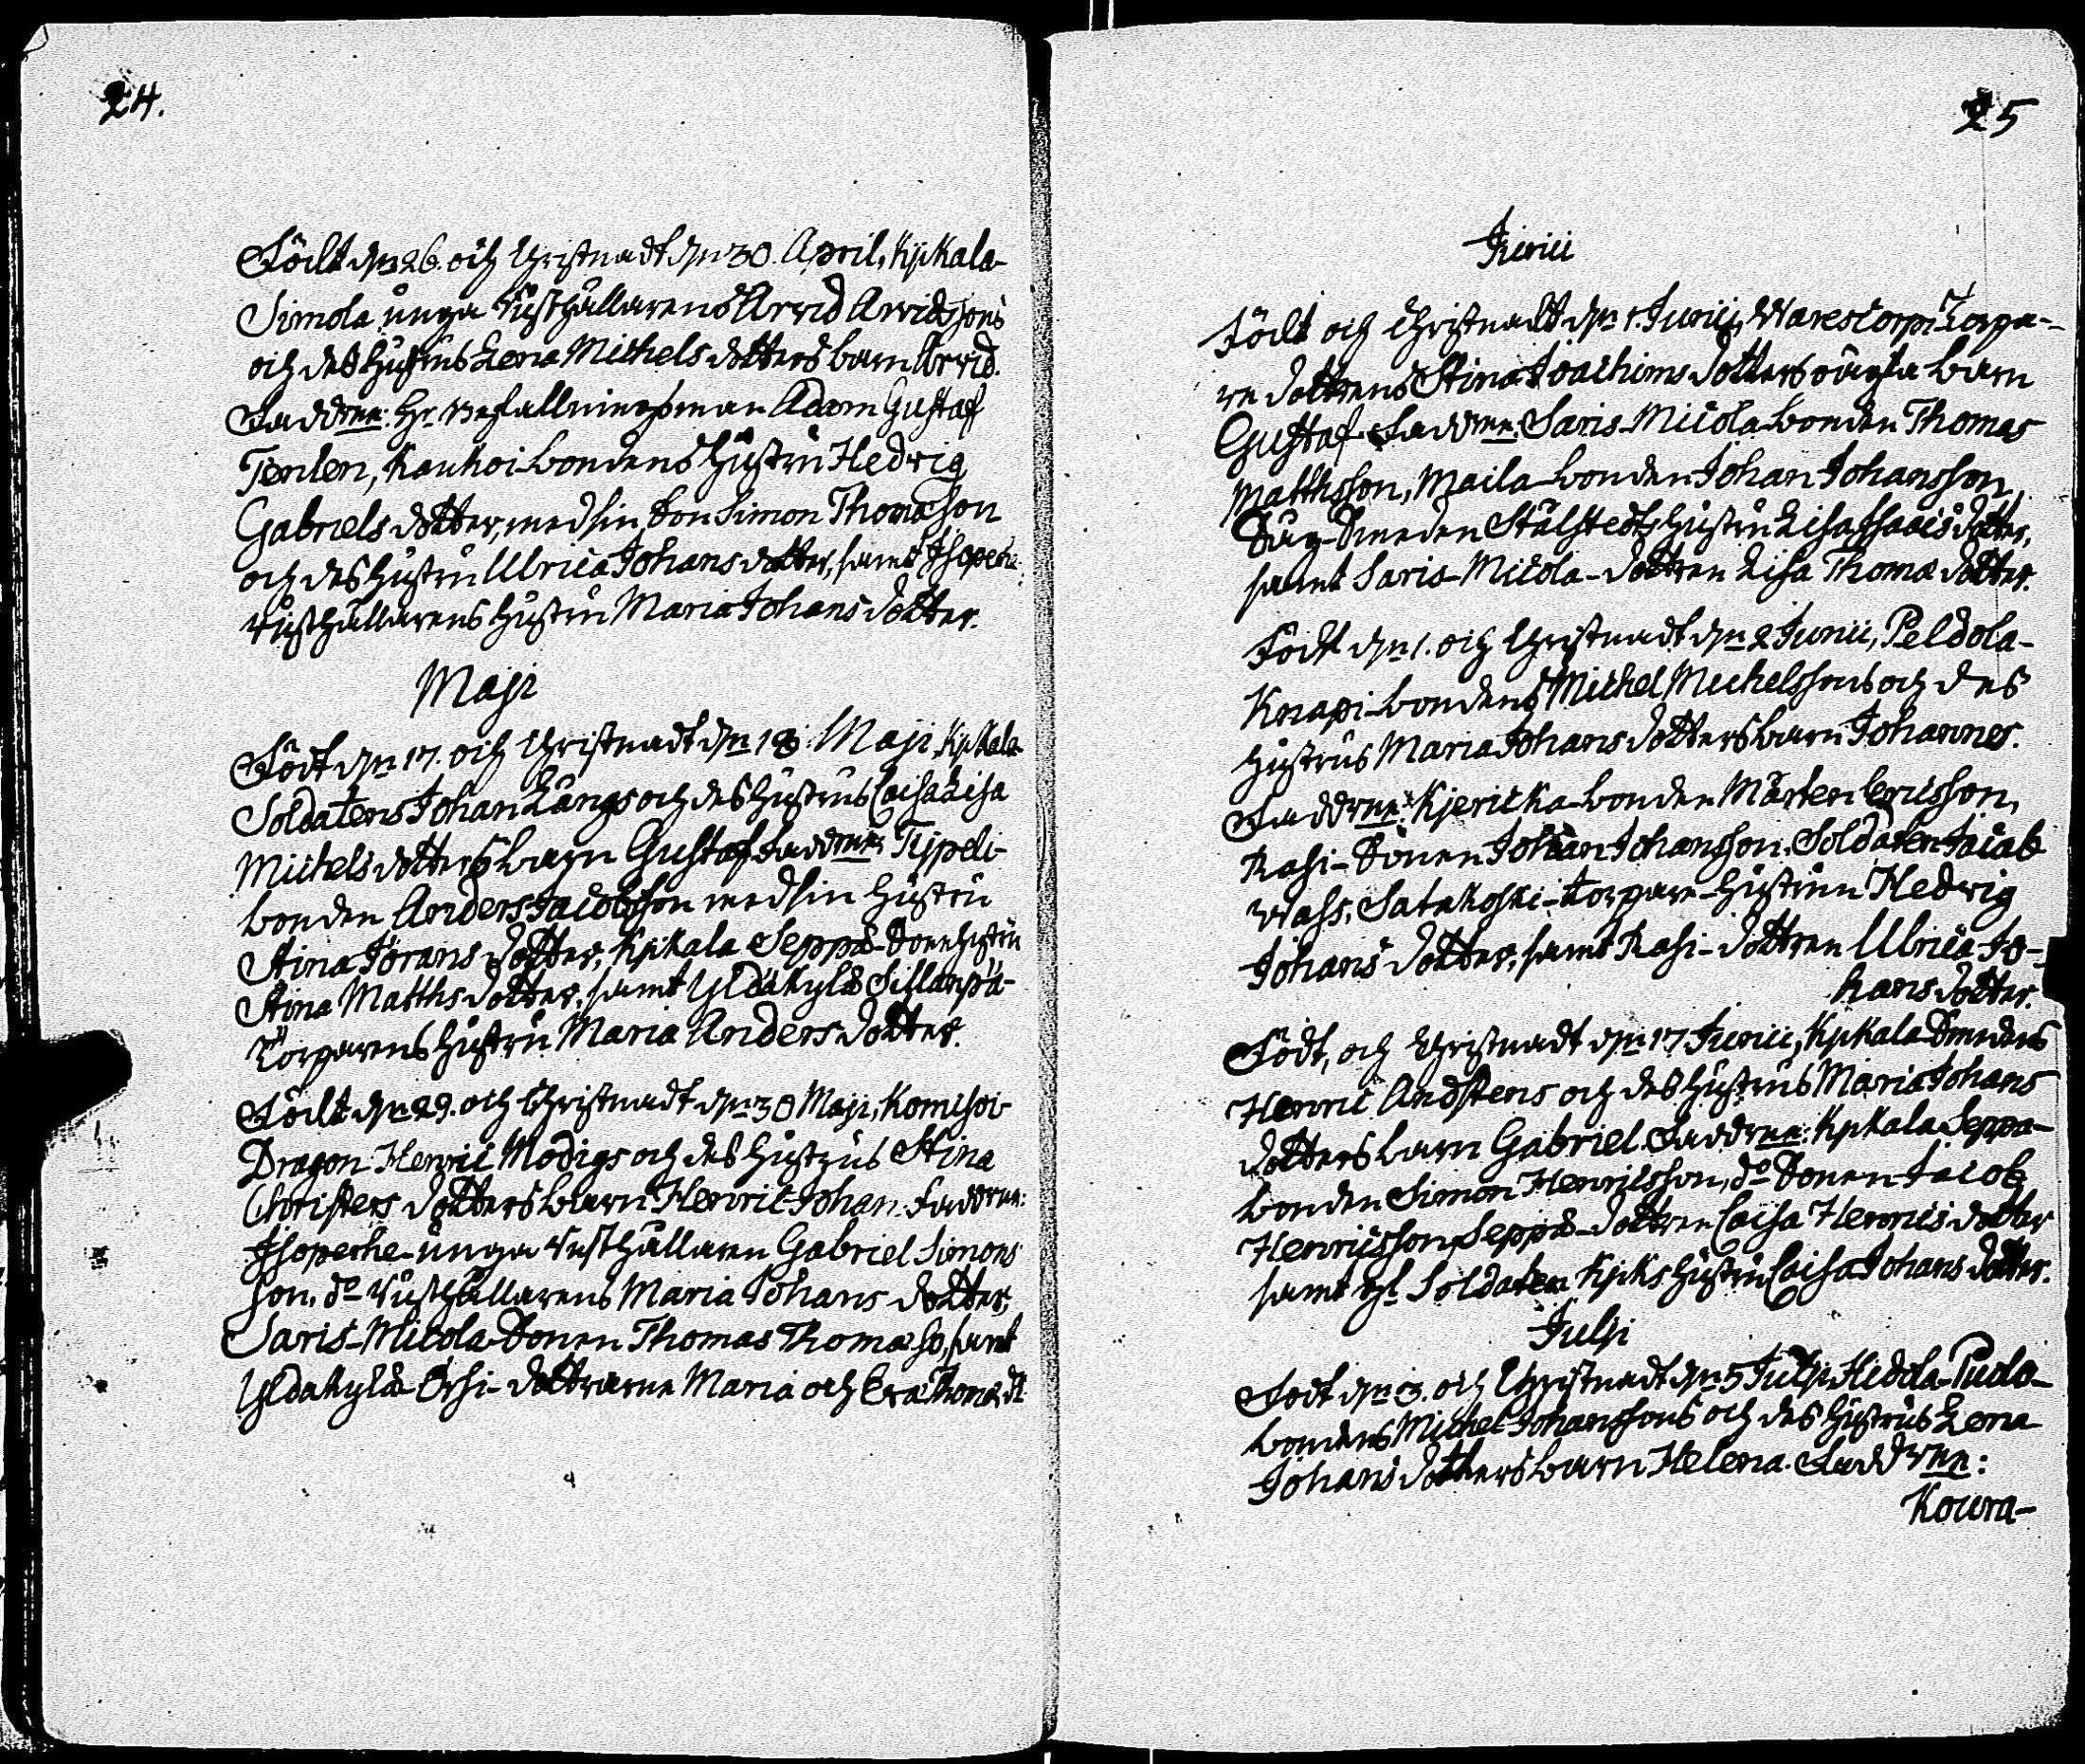 24.
Födt d:n 26. och Christnadt d:n 30. April, Kjkala
Simola unga rusthållarens Arvid Arvidssons
och des hustrus Lena Michels dotters barn Arvid.
Faddrar: Hr Befallningsman Adam Gustaf
Tenlen, Kaukoi-bondens hustru Hedvig
Gabriels dotter, med sin son Simon Thomasson
och des hustru Ulrica Johans dotter, samt Isoperhe
rusthållarens hustru Maria Johans dotter.
Maji
Födt d:n 17. och Christnadt d:n 18. Maji, Kjkala
Soldatens Johan Långs och des hustrus Caisa Lisa
Michels dotters barn Gustaf. Faddrar: Typeli-
bonden Anders Jacobsson med sin hustru
Stina Jörans dotter, Kjkala Seppä-Sonhustru
Stina Matths dotter, samt Yldäkylä Sillanpä-
Torparens hustru Maria Anders dotter.
Födt d:n 29. och Christnadt d:n 30 Maji, Komisoi-
Dragon Henric Modigs och des hustrus Stina
Christers dotters barn Henric Johan. Faddrar:
Isoperhe-unga rusthållaren Gabriel Simons
son, d:o rusthållarens Maria Johans dotter,
Saris-Micola Sonen Thomas Thomæ so, samt
Yldäkylä-Orsi-döttrarna Maria och Eva Thomæ dt.
25
Junii
Födt och Christnadt d:n 1. Junii, Warescorpi Torpa-
re dottrens Stina Joachims dotters oägta barn
Gustaf. Faddrar: Saris-Micola-bonden Thomas
Matthsson, Maila-bonden Johan Johansson,
Bug-Smeden Stålstedts hustru Lisa Isaacs dotter,
samt Saris-Micola-dottren Lisa Thomæ dotter.
Födt d:n 1. och Christnadt d:n 2 Junii, Peldola-
Knapi-bondens Michel Michelssons och des
hustrus Maria Johans dotters barn Johannes.
Faddrar: Kjericka-bonden Mårten Ericsson,
Rasi-Sonen Johan Johansson, Soldaten Jacob
Wass, Satakoski-torpare-hustrun Hedvig
Johans dotter, samt Rasi-dottren Ulrica Jo-
hans dotter.
Födt, och Christnadt d:n 17 Junii, Kjkala Smedens
Henric Andstens och des hustrus Maria Johans
dotters barn Gabriel. Faddrar: Kjkala Seppä-
bonden Simon Henricsson, d:o Sonen Jacob
Henricsson, Seppä-dottren Caisa Henrics dotter
samt Soldaten Kjks hustru Caisa Johans dotter.
Julji
Födt d:n 3. och Christnadt d:n 5 Julji, Heddla-Pudo-
bondens Michel Johanssons och des hustrus Lena
Johans dotters barn Helena. Faddrar:
Koura-